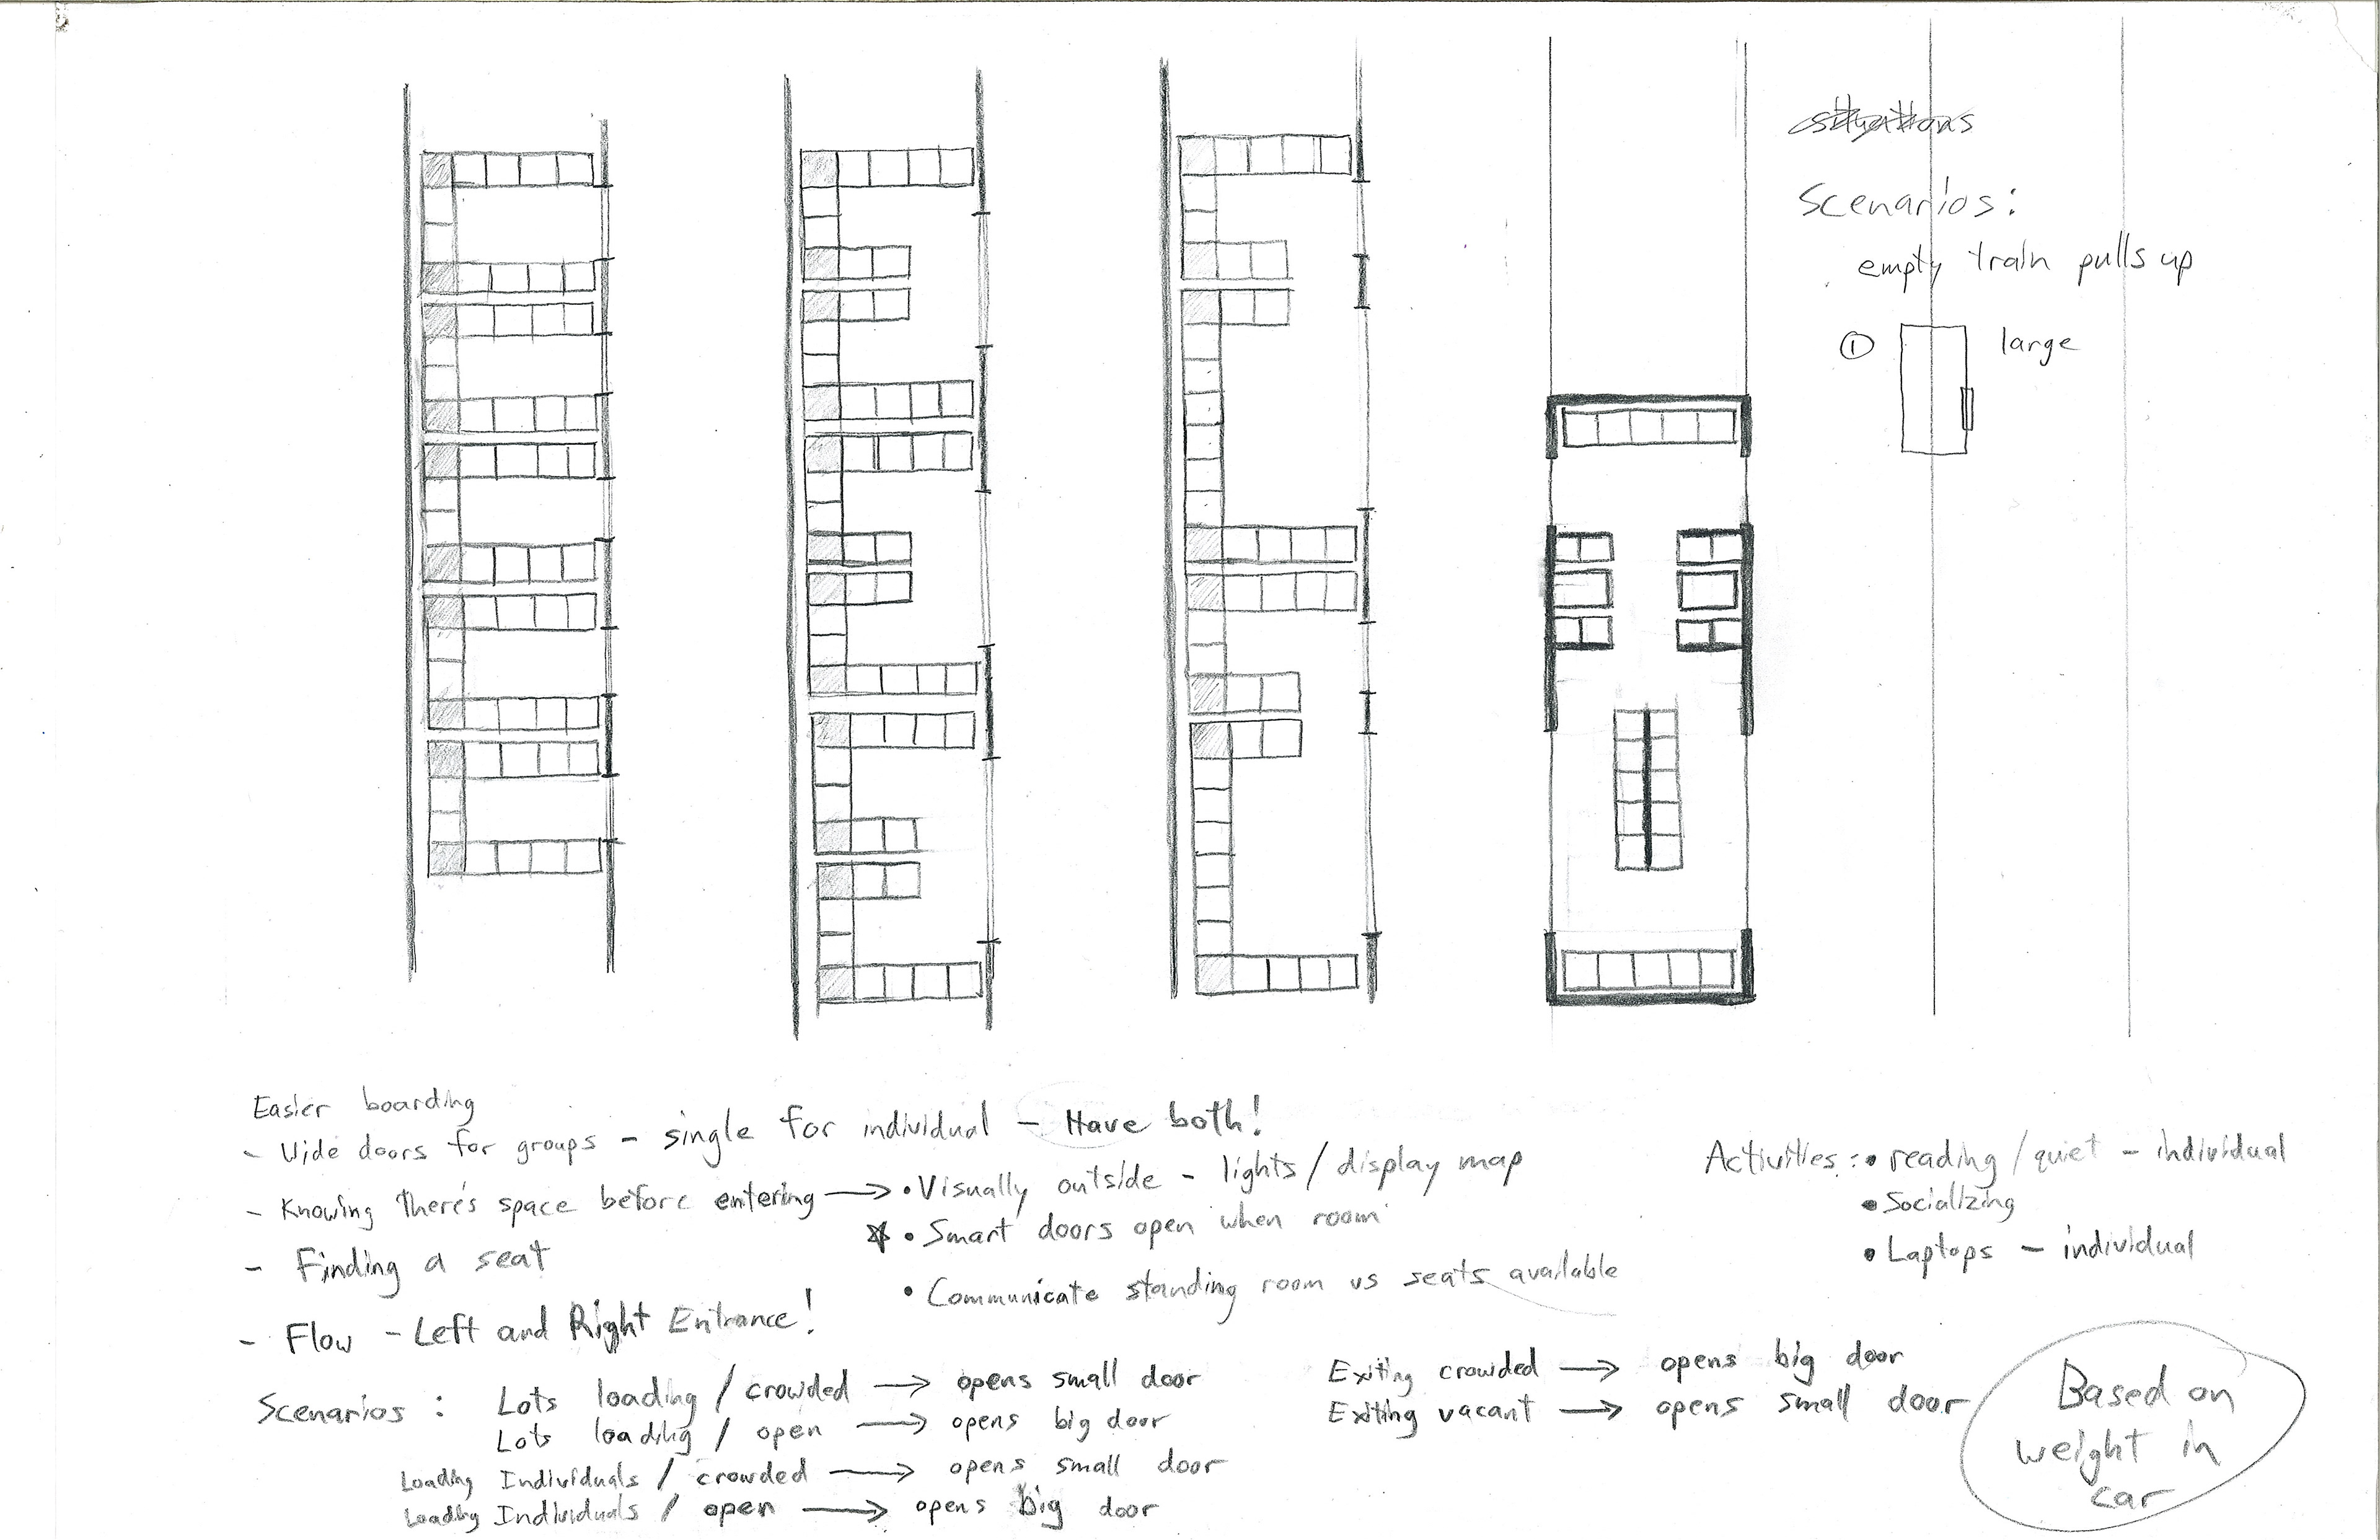 situations
Scenarios:
empty train pulls up
① large
Easier boarding
- Wide doors for groups - single for individual - Have both!
- Knowing there's space before entering → • Visually outside - lights / display map
☆ • Smart doors open when room
- Finding a seat
• Communicate standing room vs seats available
- Flow - Left and Right Entrance!
Activities: • reading / quiet - individual
• Socializing
• Laptops - individual
Scenarios: Lots loading / crowded → opens small door
Lots loading / open → opens big door
Loading Individuals / crowded → opens small door
Loading Individuals / open → opens big door
Exiting crowded → opens big door
Exiting vacant → opens small door
Based on
weight in
car